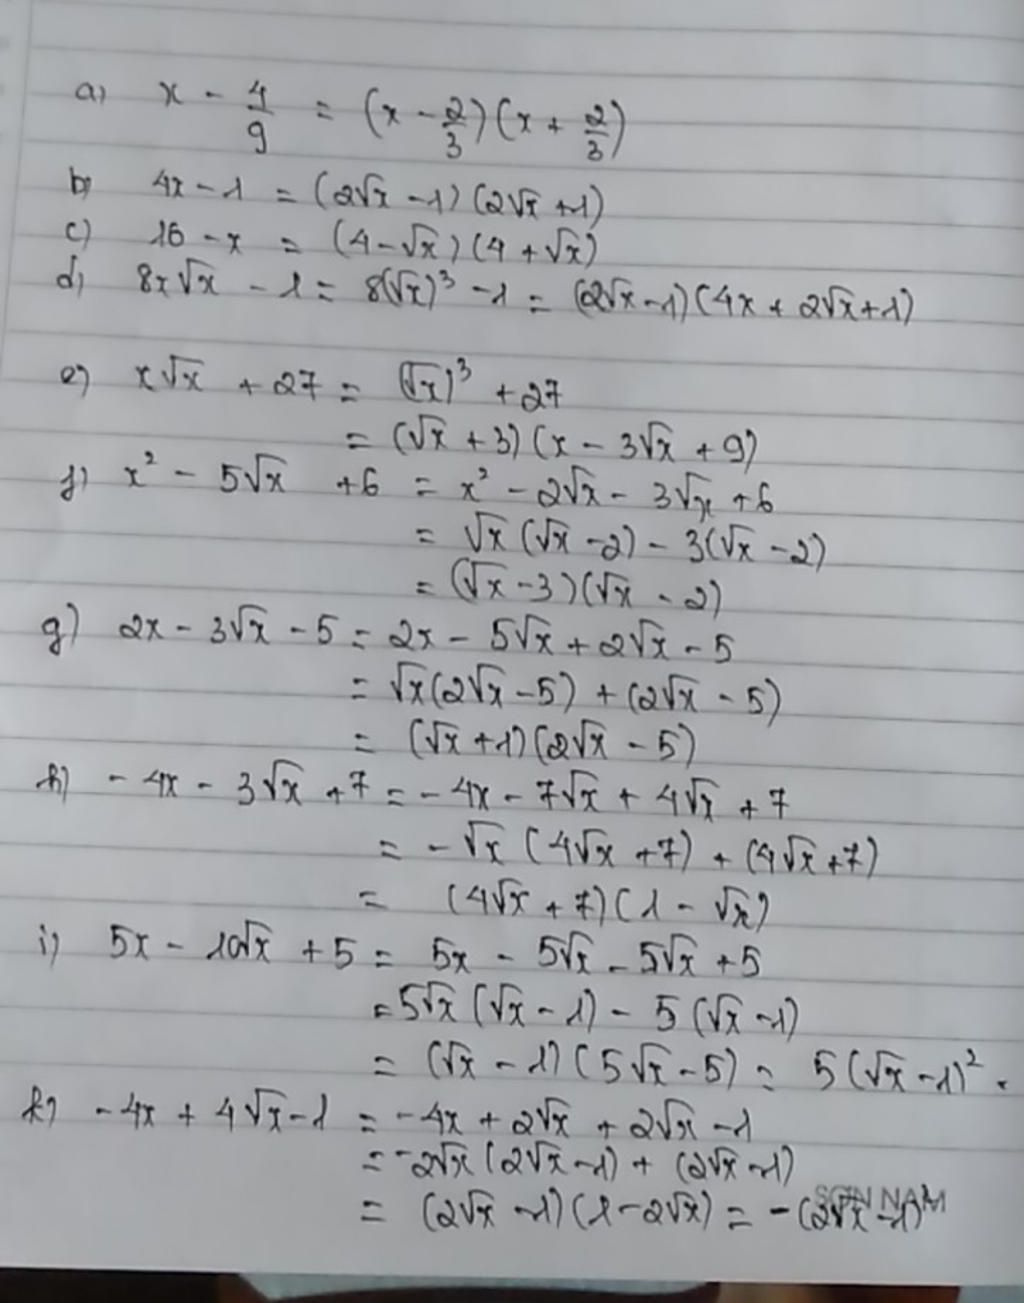 a) x - 4/9 = (x - 2/3)(x + 2/3)
b) 4x - 1 = (2√x - 1)(2√x + 1)
c) 16 - x = (4 - √x)(4 + √x)
d) 8x√x - 1 = 8(√x)³ - 1 = (2√x - 1)(4x + 2√x + 1)
e) x√x + 27 = (√x)³ + 27
= (√x + 3)(x - 3√x + 9)
f) x² - 5√x + 6 = x² - 2√x - 3√x + 6
= √x(√x - 2) - 3(√x - 2)
= (√x - 3)(√x - 2)
g) 2x - 3√x - 5 = 2x - 5√x + 2√x - 5
= √x(2√x - 5) + (2√x - 5)
= (√x + 1)(2√x - 5)
h) - 4x - 3√x + 7 = - 4x - 7√x + 4√x + 7
= - √x(4√x + 7) + (4√x + 7)
= (4√x + 7)(1 - √x)
i) 5x - 10√x + 5 = 5x - 5√x - 5√x + 5
= 5√x(√x - 1) - 5(√x - 1)
= (√x - 1)(5√x - 5) = 5(√x - 1)².
k) - 4x + 4√x - 1 = - 4x + 2√x + 2√x - 1
= - 2√x(2√x - 1) + (2√x - 1)
= (2√x - 1)(1 - 2√x) = - (2√x - 1)²